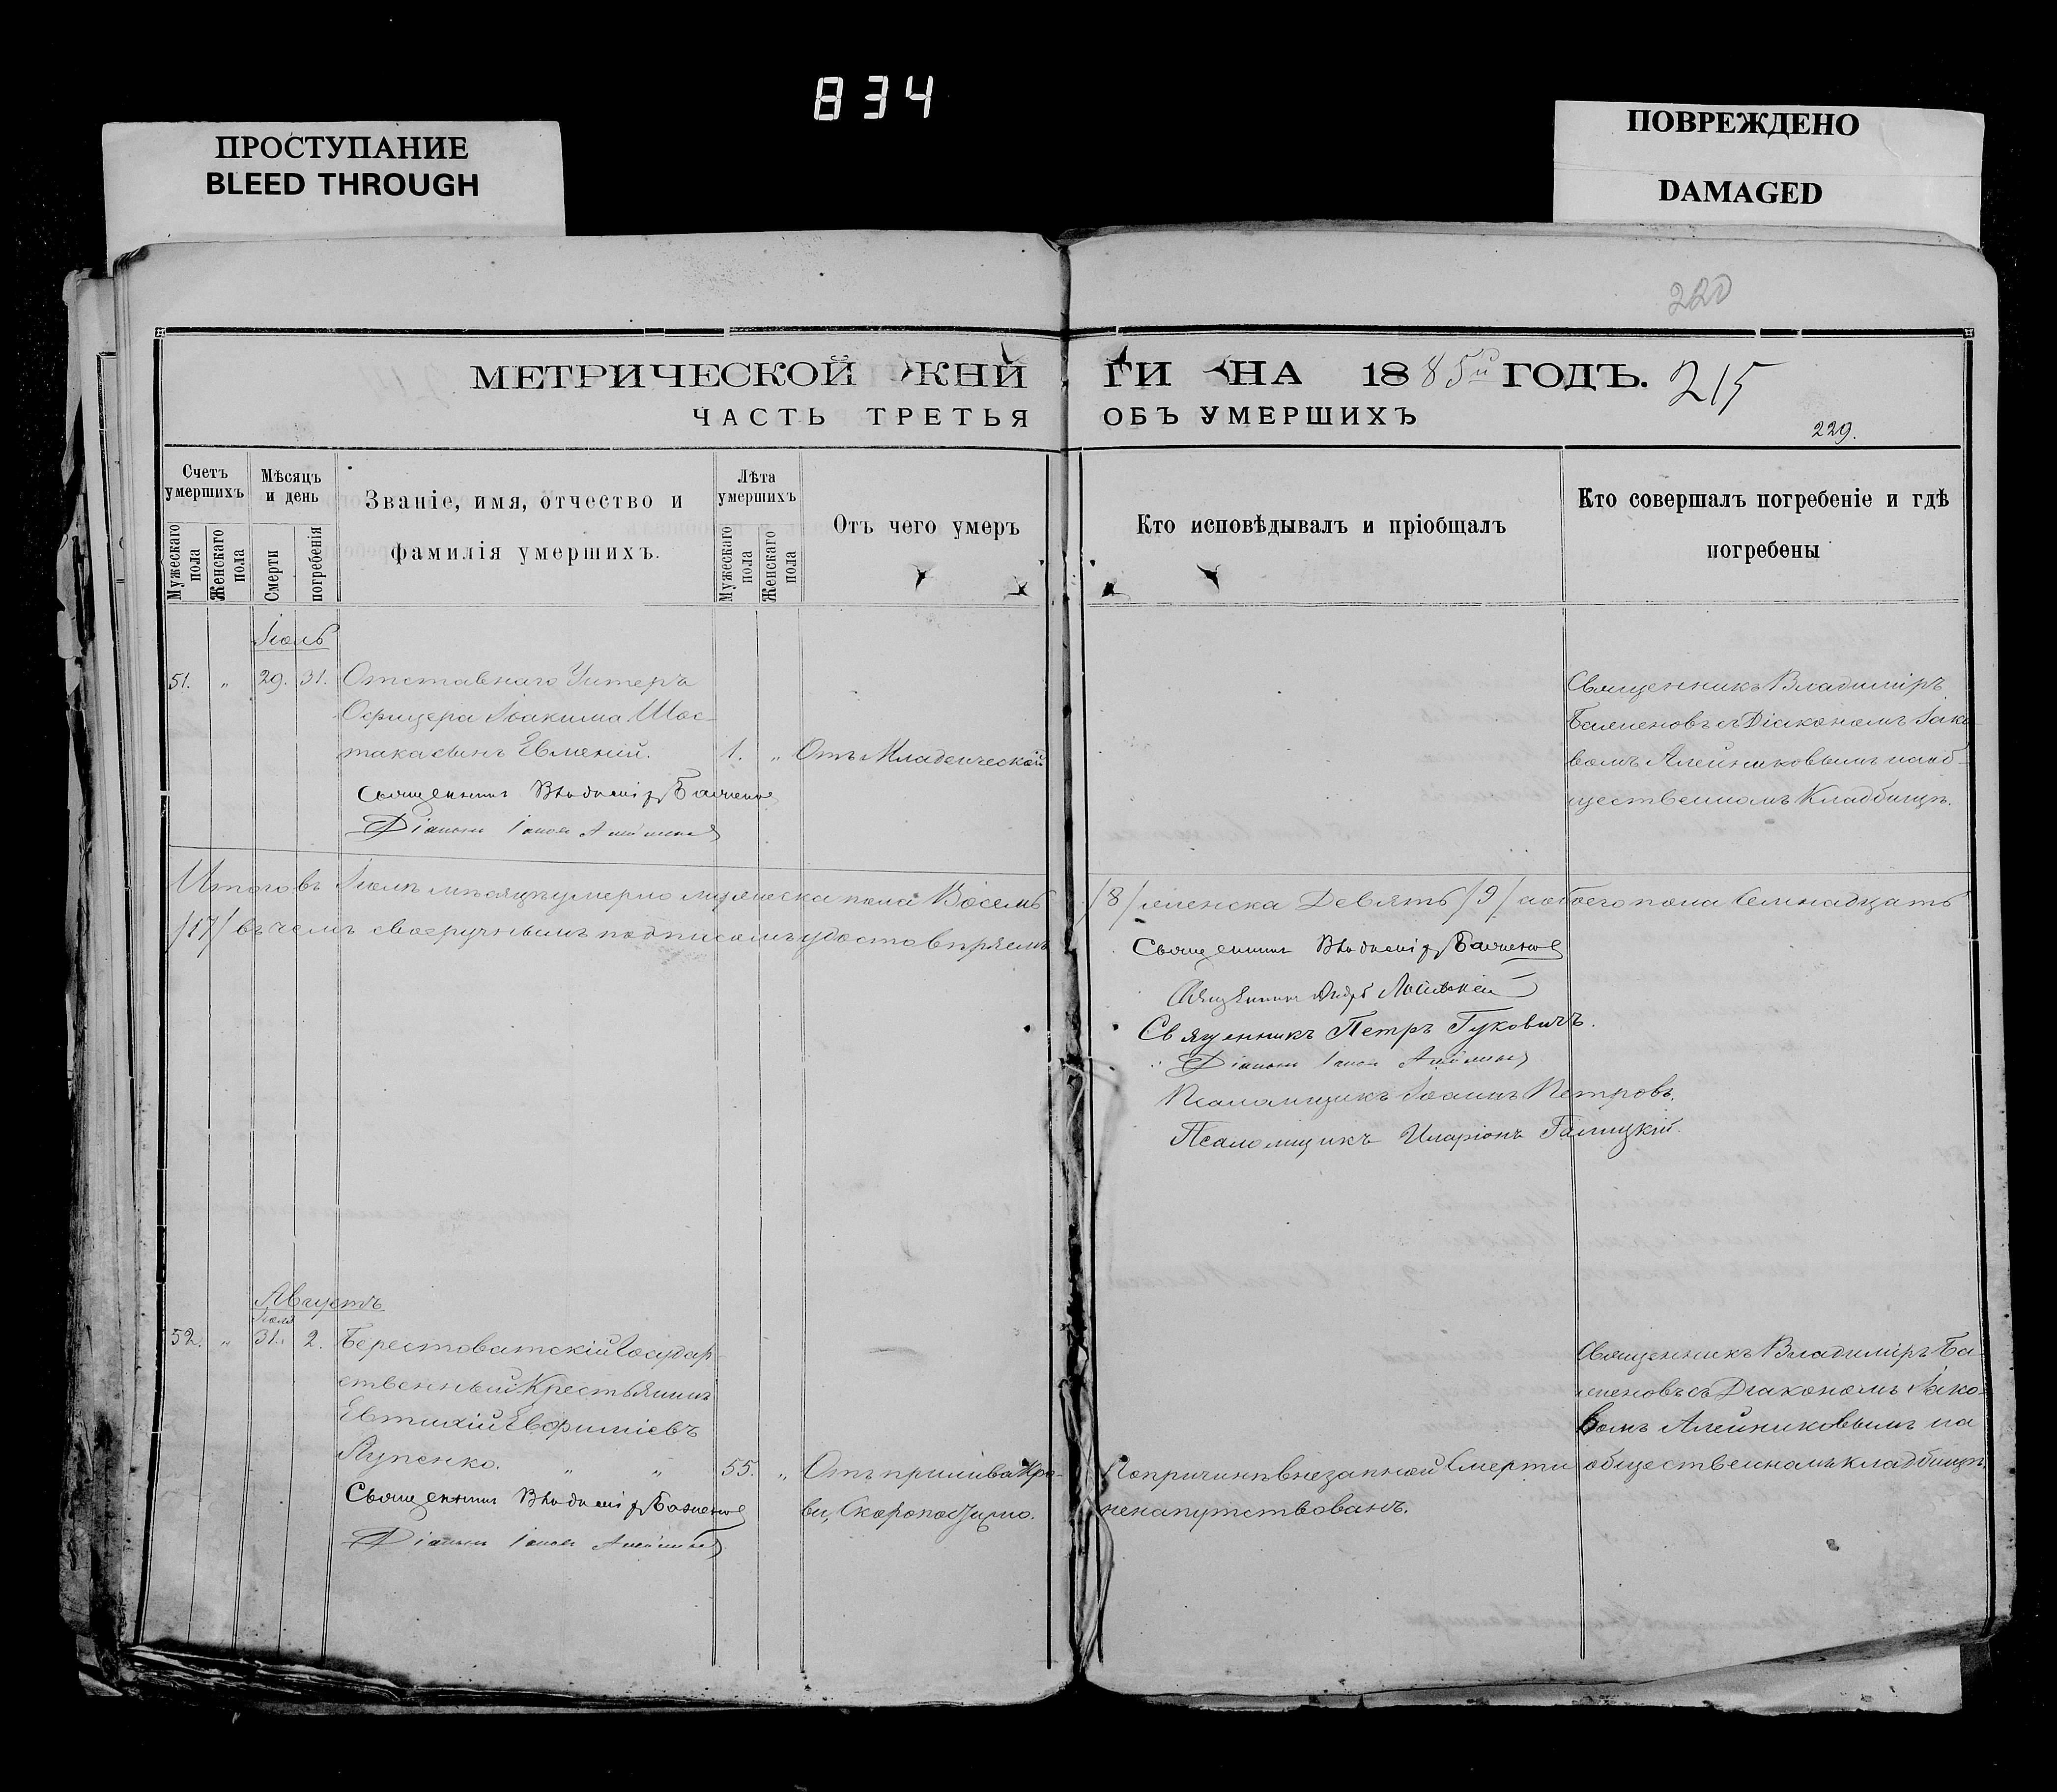 834
ПРОСТУПАНИЕ
BLEED THROUGH
ПОВРЕЖДЕНО
DAMAGED
220
МЕТРИЧЕСКОЙ КНИ
ГИ НА 1885й ГОДЪ.
215
ЧАСТЬ ТРЕТЬЯ
ОБЪ УМЕРШИХЪ
229.
Счетъ умершихъ
Мужескаго пола
Женскаго пола
Мѣсяцъ и день
Смерти
погребенія
Званіе, имя, отчество и
фамилія умершихъ.
Лѣта умершихъ
Мужескаго пола
Женскаго пола
Отъ чего умеръ
Кто исповѣдывалъ и пріобщалъ
Кто совершалъ погребеніе и гдѣ
погребены
Іюль
51. „ 29. 31. Отставнаго Унтеръ
Офицера Іоакима Шос-
така сынъ Евмений. 1. „ Отъ Младенческой
Священникъ Владиміръ
Баженовъ съ Діакономъ Іако-
вомъ Алейниковымъ на об-
щественномъ Кладбищѣ.
Священникъ Владиміръ Баженовъ
Діаконъ Іаковъ Алейниковъ
Итого въ Іюлѣ мѣсяцѣ умерло мужеска пола Восемь
/8/ женска Девять /9/ а обоего пола Семнадцать
/17/ въ чемъ своеручнымъ подписомъ удостовѣряемъ
Священникъ Владиміръ Баженовъ
Священникъ
Священникъ Петръ Гуковичъ.
Діаконъ Іаковъ Алейниковъ
Псаломщикъ Іоаннъ Петровъ.
Псаломщикъ Иларіонъ Галицкій.
Августъ
Іюля
52. „ 31. 2. Берестоватскій Государ-
ственный Крестьянинъ
Евтихій Евфиміевъ
Лупенко. „ „ 55. „ Отъ прилива Кро-
ви, Скоропостижно.
По причинѣ внезапной Смерти
ненапутствованъ.
Священникъ Владиміръ Ба-
женовъ съ Діакономъ Іако-
вомъ Алейниковымъ на
общественномъ кладбищѣ.
Священникъ Владиміръ Баженовъ
Діаконъ Іаковъ Алейниковъ